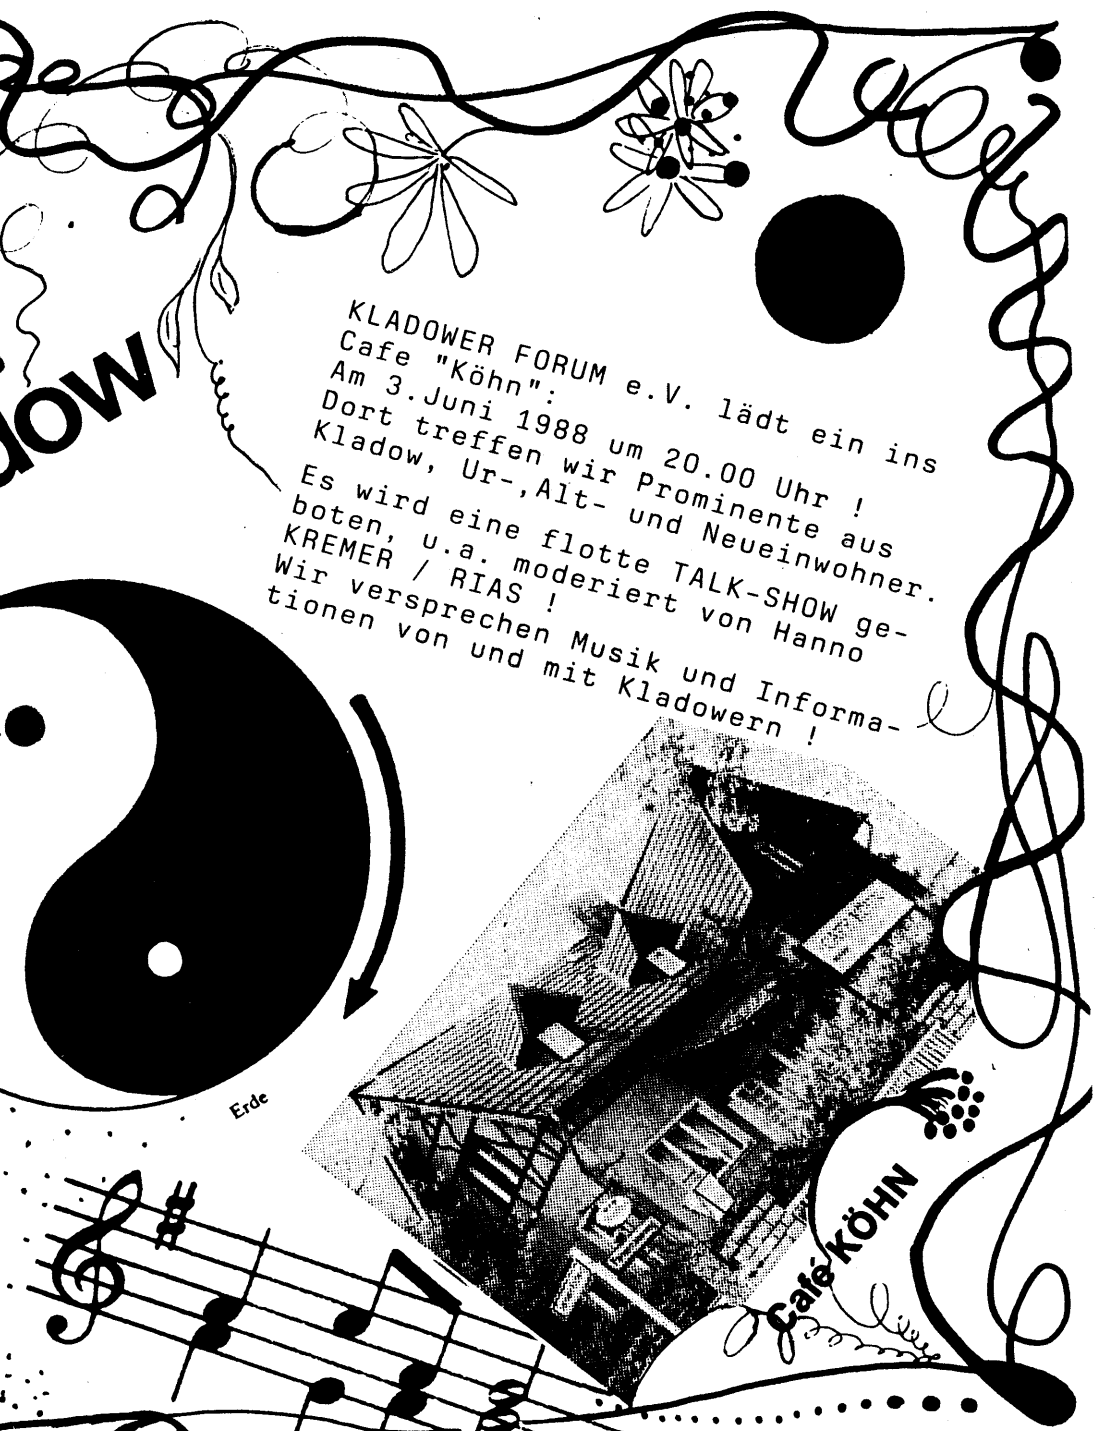 dow
KLADOWER FORUM e.V. lädt ein ins
Cafe "Köhn":
Am 3.Juni 1988 um 20.00 Uhr !
Dort treffen wir Prominente aus
Kladow, Ur-,Alt- und Neueinwohner.
Es wird eine flotte TALK-SHOW ge-
boten, u.a. moderiert von Hanno
KREMER / RIAS !
Wir versprechen Musik und Informa-
tionen von und mit Kladowern !
Erde
Café KÖHN